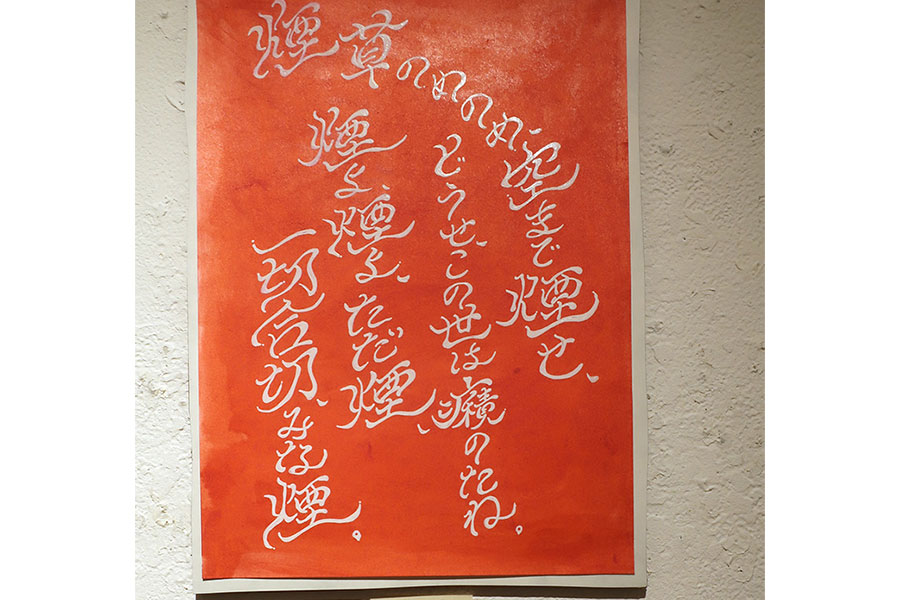 煙草のめのめ、空まで煙せ、
どうせ、この世は癪のたね。
煙よ、煙よ、ただ煙、
一切合切、みな煙。